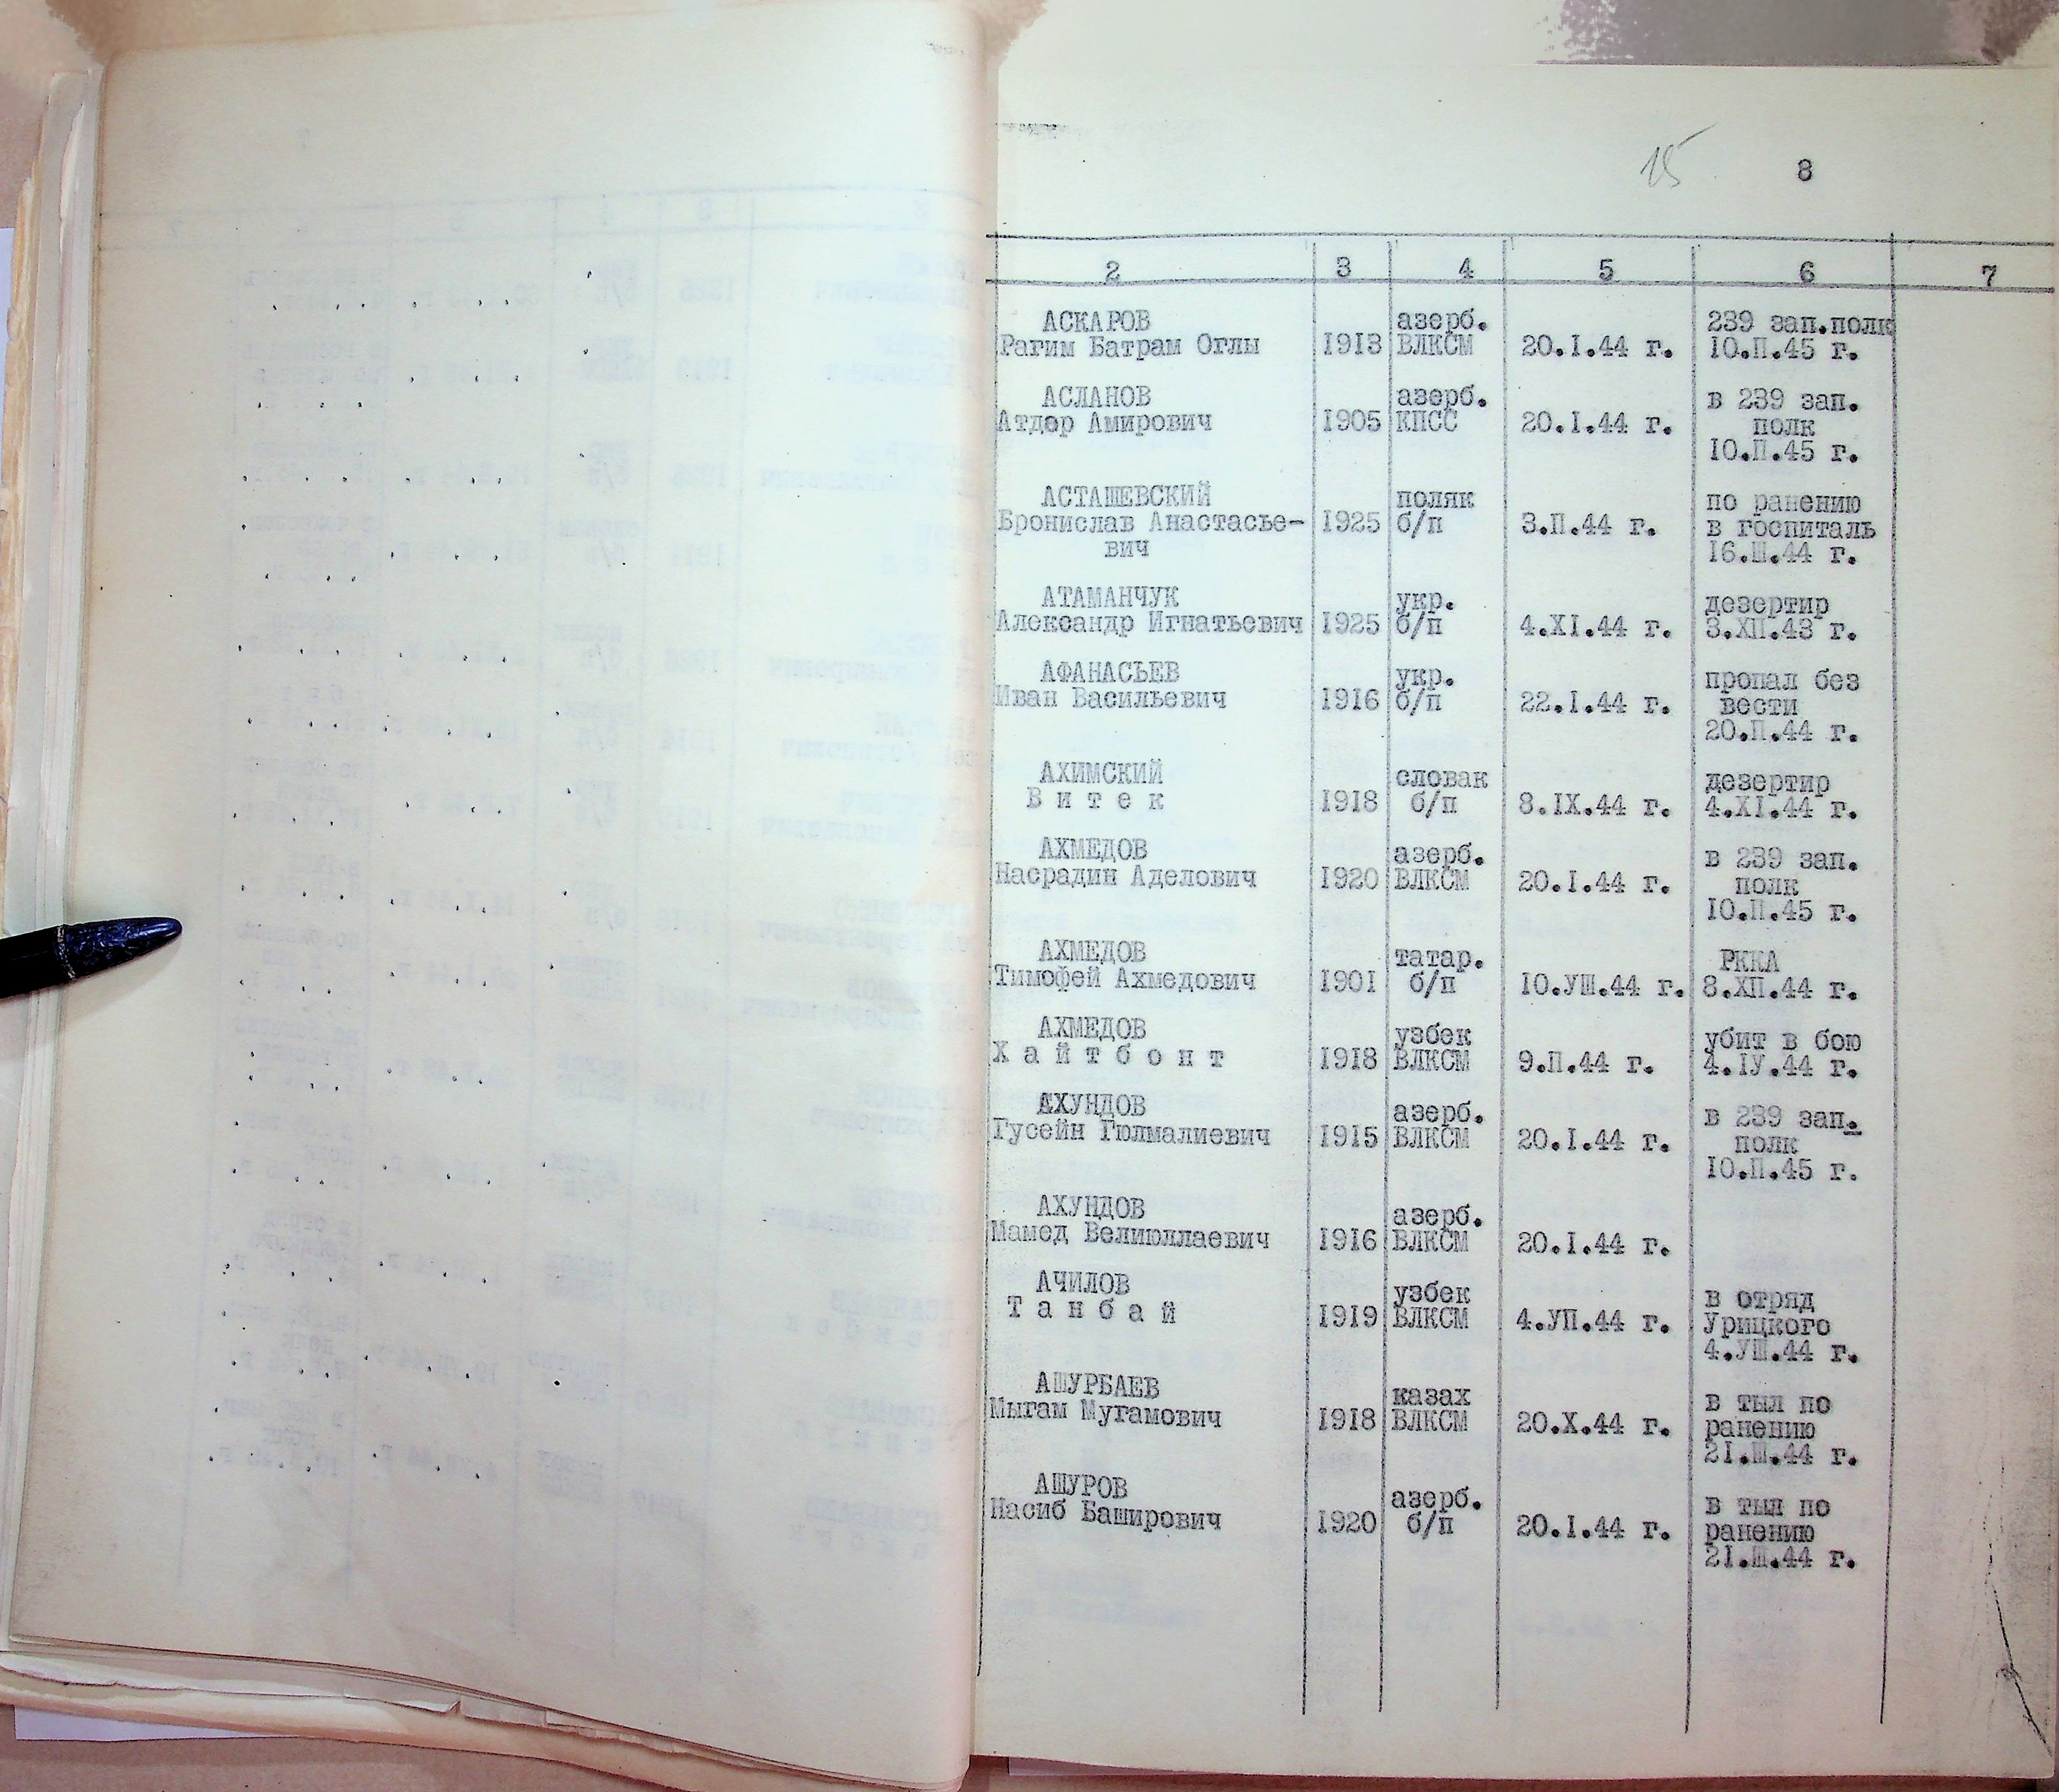 15 8
2 3 4 5 6 7
АСКАРОВ азерб. 239 зап.полк
Рагим Батрам Оглы 1913 ВЛКСМ 20.I.44 г. 10.П.45 г.
АСЛАНОВ азерб. в 239 зап.
Атдор Амирович 1905 КПСС 20.I.44 г. полк
10.П.45 г.
АСТАШЕВСКИЙ поляк по ранению
Бронислав Анастасье- 1925 б/п 3.П.44 г. в госпиталь
вич 16.Ш.44 г.
АТАМАНЧУК укр. дезертир
Александр Игнатьевич 1925 б/п 4.XI.44 г. 3.ХП.43 г.
АФАНАСЬЕВ укр. пропал без
Иван Васильевич 1916 б/п 22.I.44 г. вести
20.П.44 г.
АХИМСКИЙ словак дезертир
В и т е к 1918 б/п 8.IX.44 г. 4.XI.44 г.
АХМЕДОВ азерб. в 239 зап.
Насрадин Аделович 1920 ВЛКСМ 20.I.44 г. полк
10.П.45 г.
АХМЕДОВ татар. РККА
Тимофей Ахмедович 1901 б/п 10.УШ.44 г. 8.ХП.44 г.
АХМЕДОВ узбек убит в бою
Х а й т б о н т 1918 ВЛКСМ 9.П.44 г. 4.IУ.44 г.
АХУНДОВ азерб. в 239 зап.
Гусейн Гюлмалиевич 1915 ВЛКСМ 20.I.44 г. полк
10.П.45 г.
АХУНДОВ азерб.
Мамед Велиюллаевич 1916 ВЛКСМ 20.I.44 г.
АЧИЛОВ узбек в отряд
Т а н б а й 1919 ВЛКСМ 4.УП.44 г. Урицкого
4.УШ.44 г.
АШУРБАЕВ казах в тыл по
Мыгам Мугамович 1918 ВЛКСМ 20.X.44 г. ранению
21.Ш.44 г.
АШУРОВ азерб. в тыл по
Насиб Баширович 1920 б/п 20.I.44 г. ранению
21.Ш.44 г.